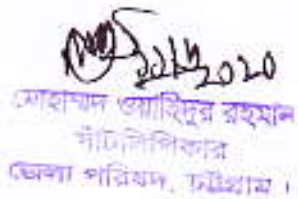 2020
মোহাম্মদ ওয়াহিদুর রহমান
সাঁটলিপিকার
জেলা পরিষদ, চট্টগ্রাম ।